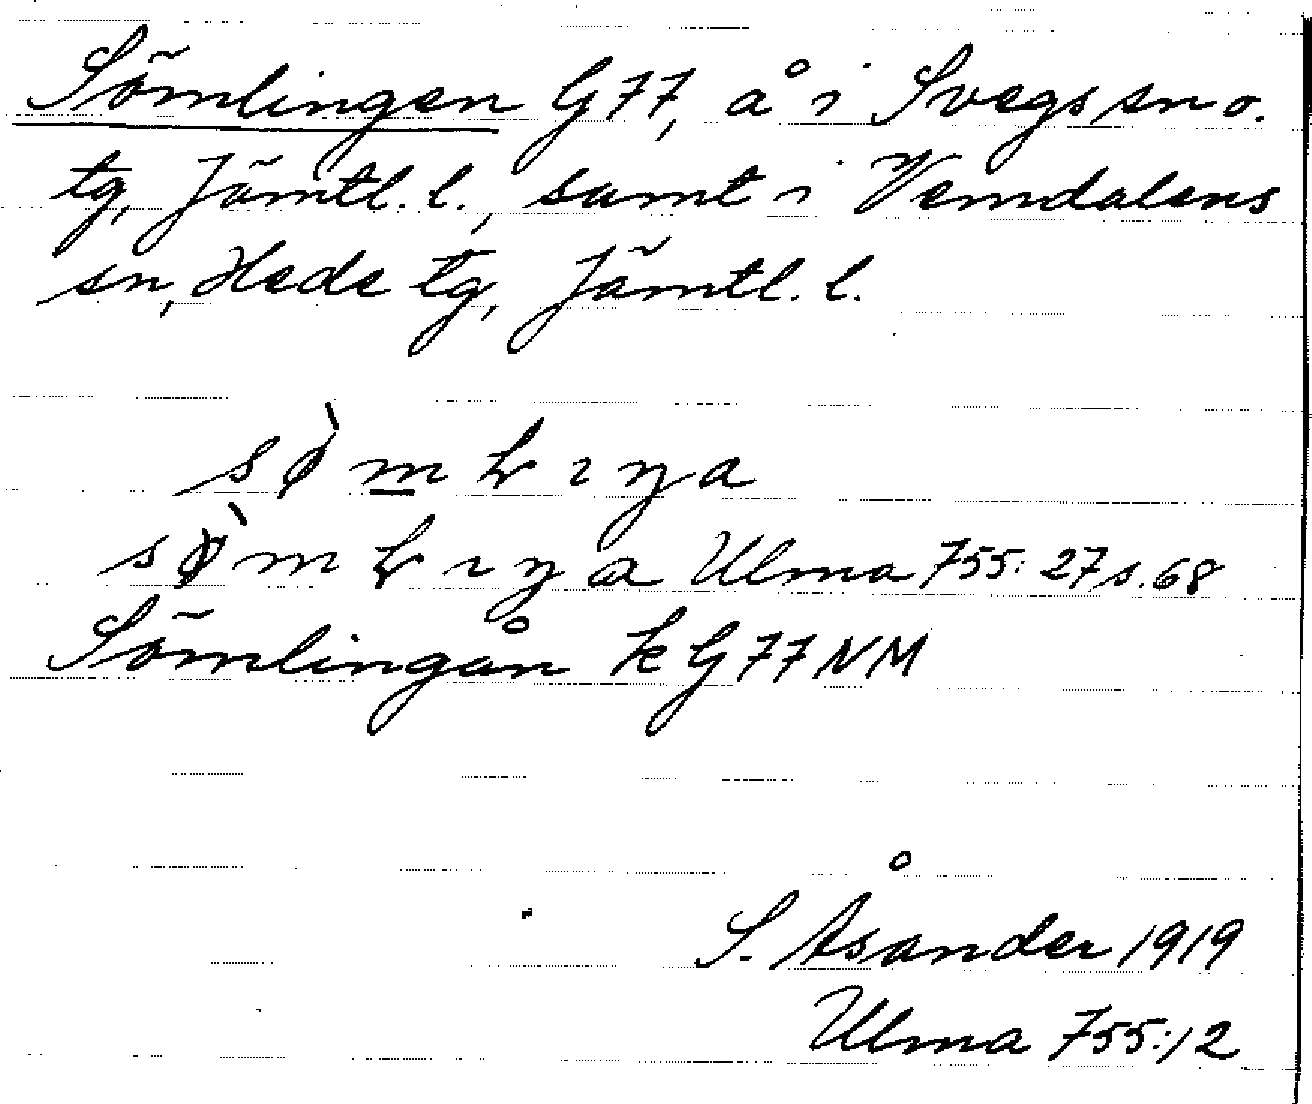 Sömlingen G77, å i Svegs sn o.
tg, Jämtl. l., samt i Vemdalens
sn, Hede tg, Jämtl. l.
Ulma 755:27 s. 68
Sömlingån k G77NM
S. Åsander 1919
Ulma 755:12